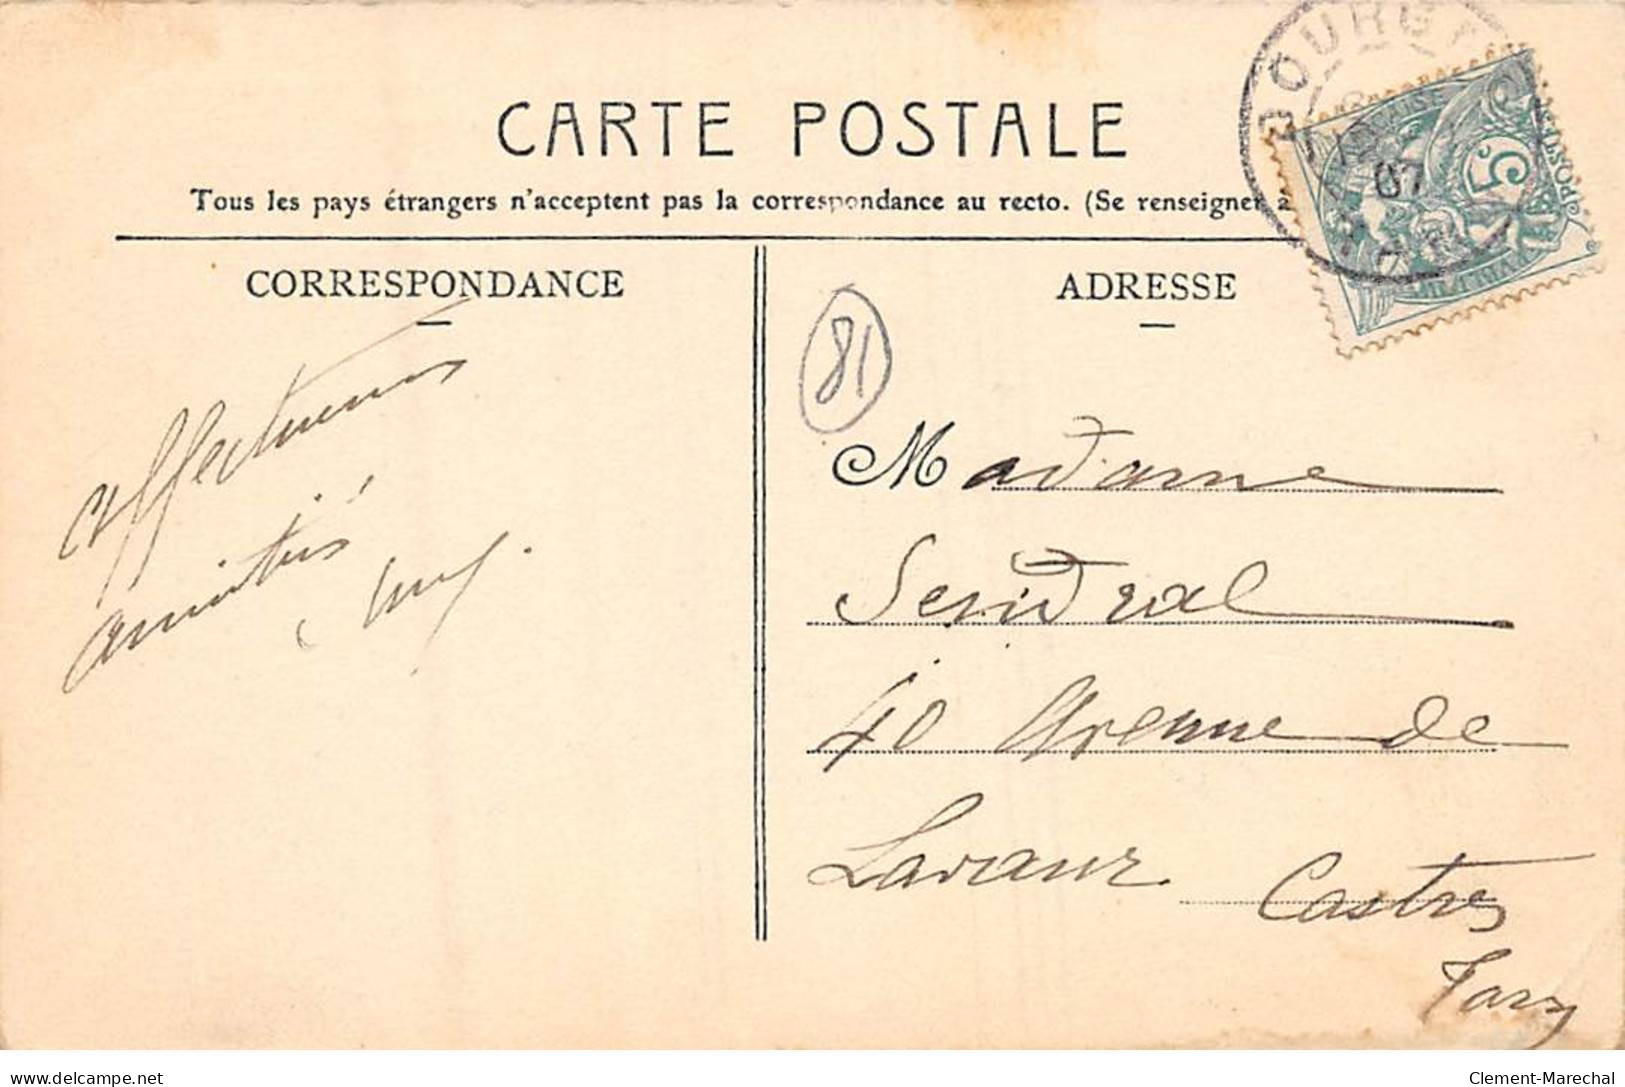 CARTE POSTALE
Tous les pays étrangers n'acceptent pas la correspondance au recto. (Se renseigner à
CORRESPONDANCE
ADRESSE
DOURGN
07
5c
POSTES
81
affectueuses
amitiés
Madame
Sendral
40 Avenue de
Lavaur Castres
Tarn
delcampe.net
Clement-Marechal